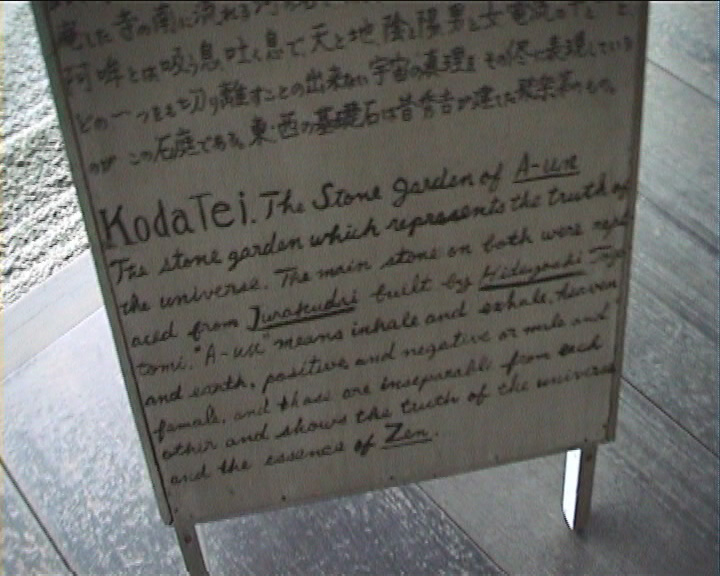 庵した寺の南に流れる
阿吽とは吸う息吐く息で天と地陰と陽男と女電流の
どの一つをも切り離すことの出来ない宇宙の真理をその侭に表現している
のがこの石庭である。東・西の基礎石は昔秀吉が建てた聚楽第のもの。
KodaTei. The Stone garden of A-un
The stone garden which represents the truth of
the universe. The main stone on both were repl
aced from Jurakudai built by Hideyoshi Toyo
tomi. "A-un" means inhale and exhale, heaven
and earth, positive and negative or male and
female, and those are inseparable from each
other and shows the truth of the universe
and the essence of Zen.